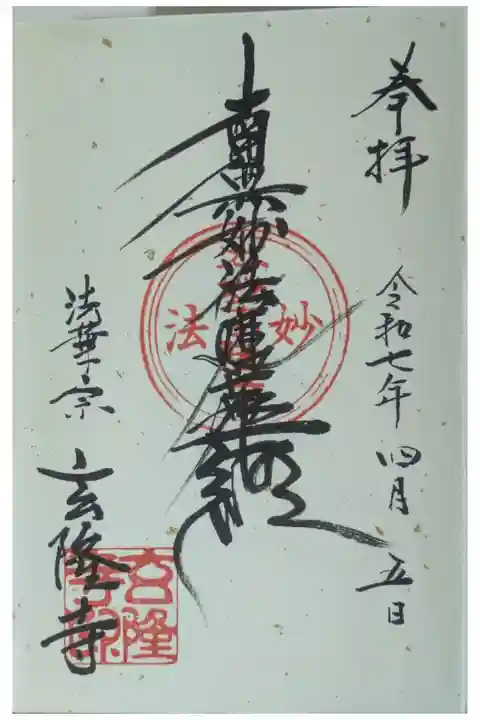 奉拝
令和七年 四月 五日
南無妙法蓮華経
妙法
法華宗 玄隆寺
玄隆寺印